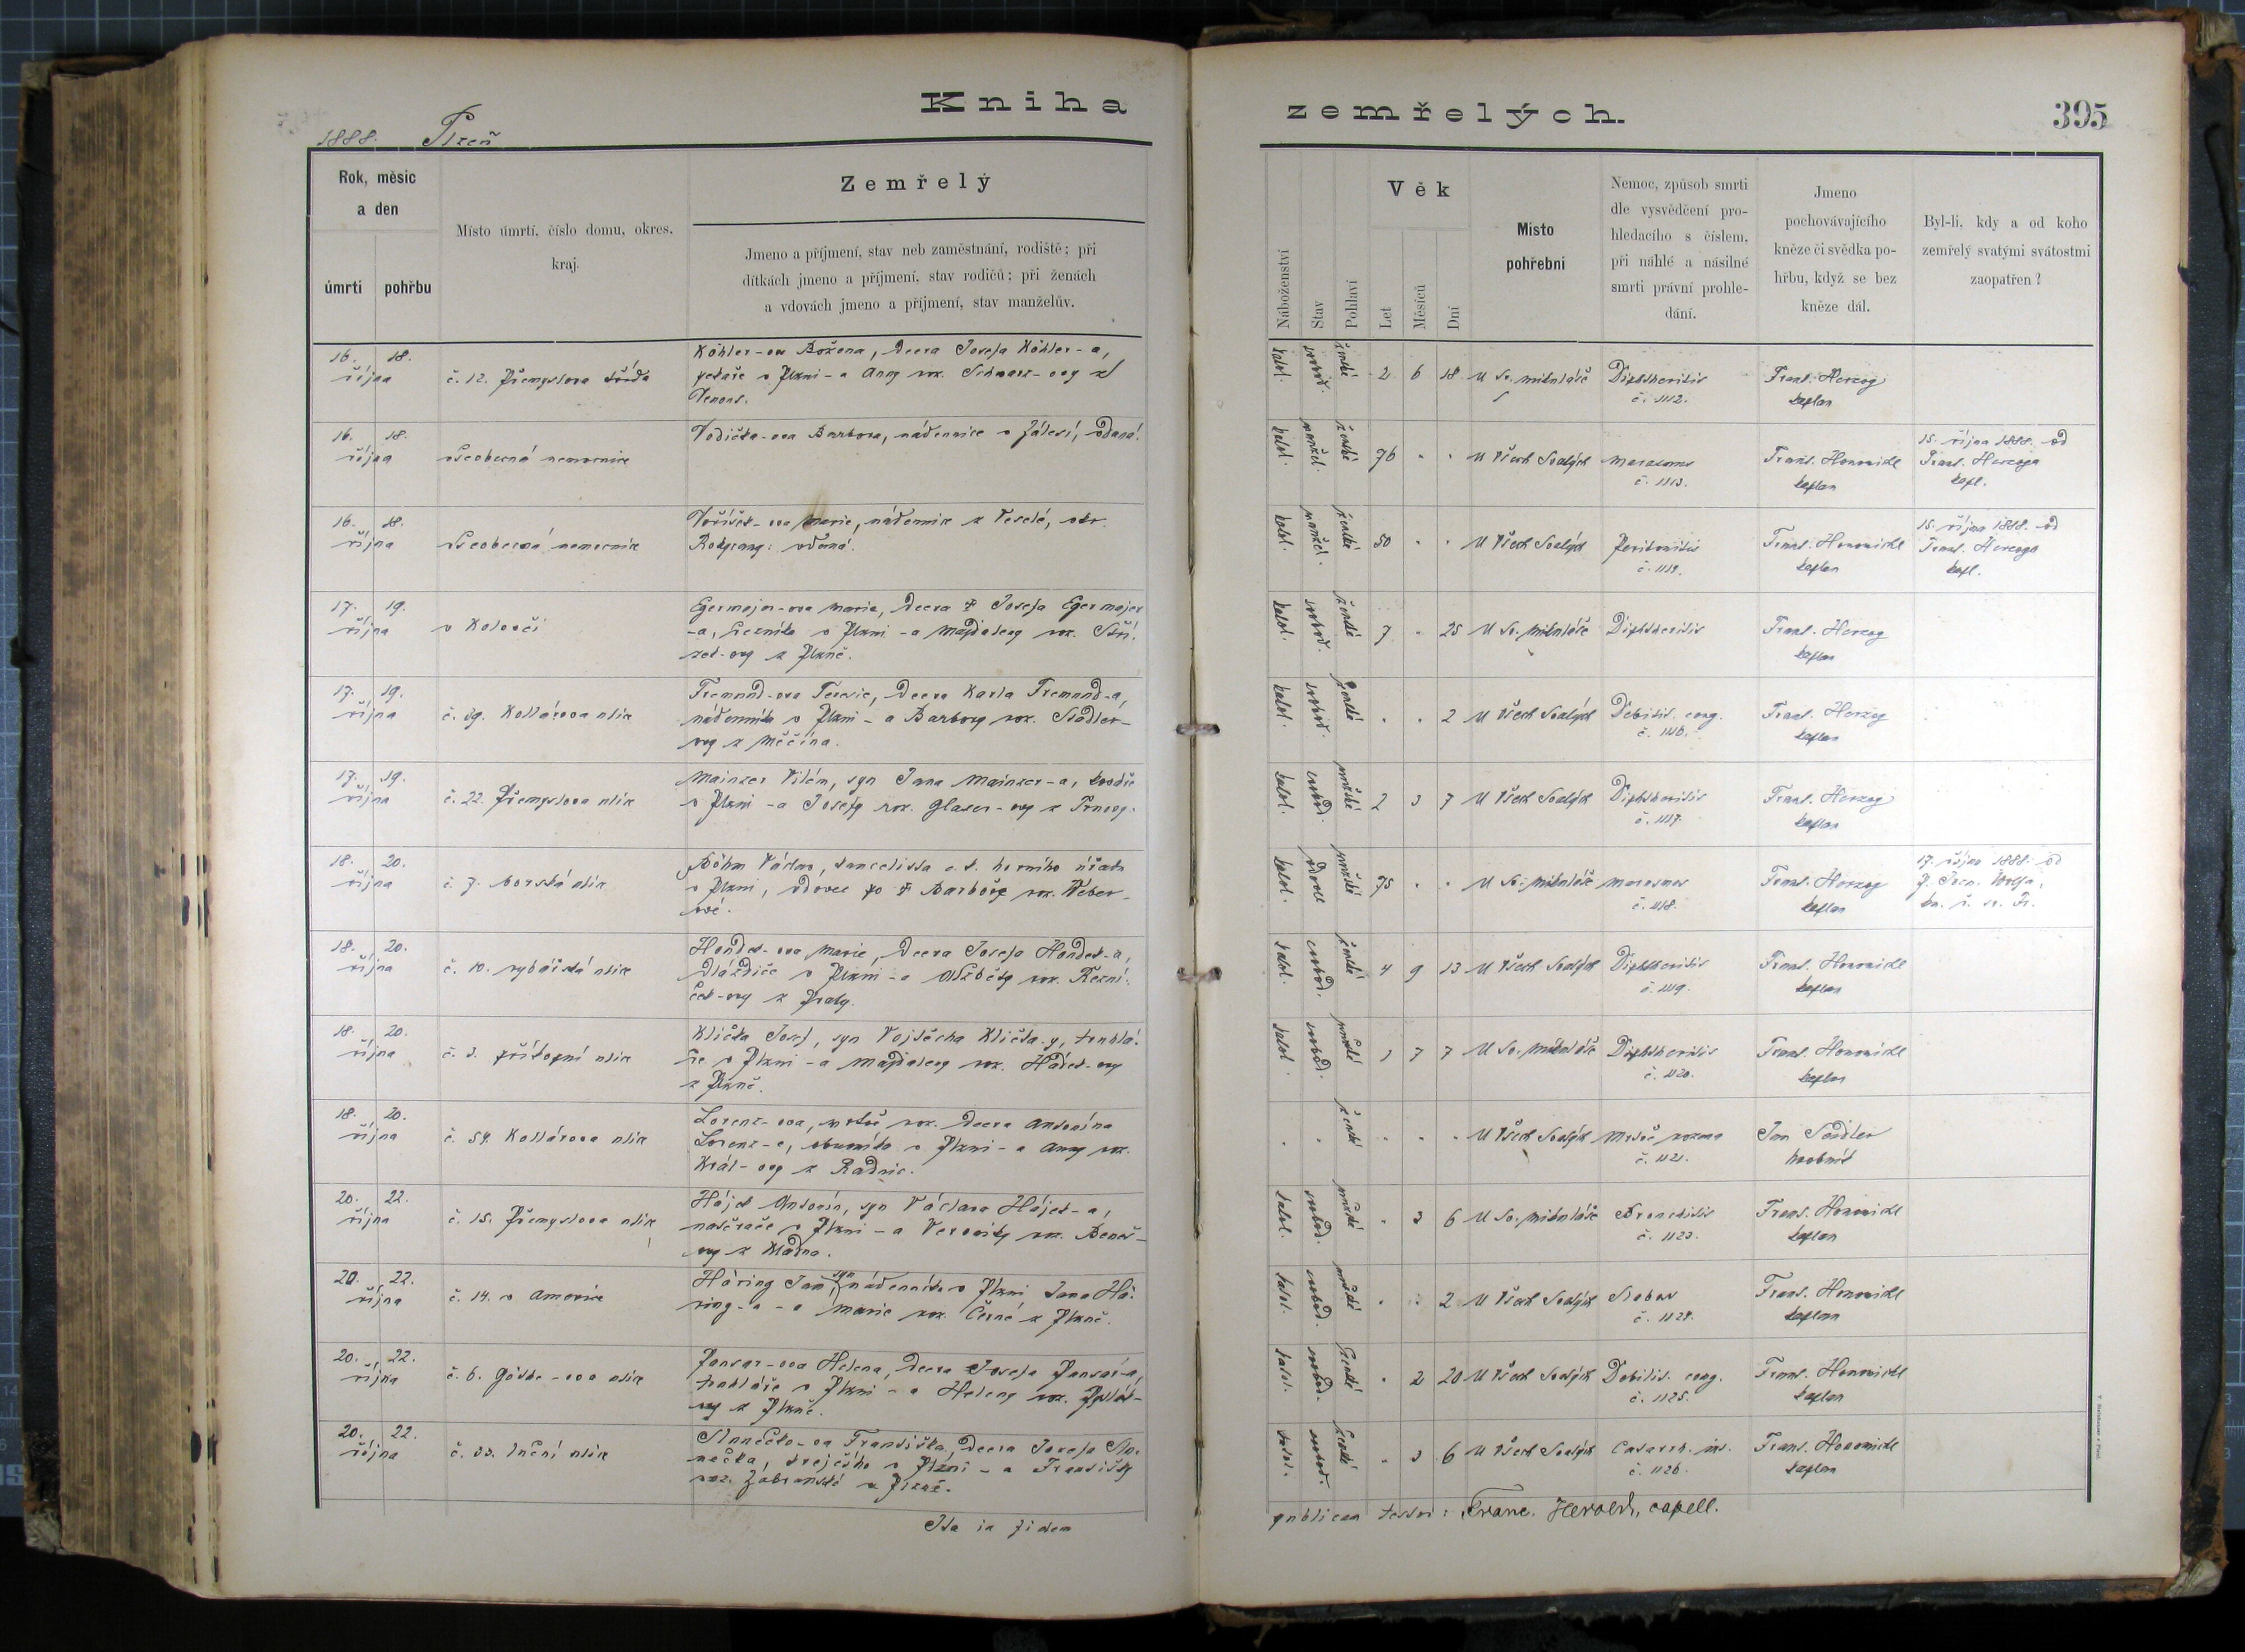 Kniha
zemřelých.
395
1888. Plzeň
Rok, měsíc
a den
úmrtí
pohřbu
Místo úmrtí, číslo domu, okres,
kraj.
Zemřelý
Jmeno a příjmení, stav neb zaměstnání, rodiště; při
dítkách jmeno a příjmení, stav rodičů; při ženách
a vdovách jmeno a příjmení, stav manželův.
Náboženství
Stav
Pohlaví
Věk
Let
Měsíců
Dní
Místo
pohřební
Nemoc, způsob smrti
dle vysvědčení pro-
hledacího s číslem,
při náhlé a násilné
smrti právní prohle-
dání.
Jmeno
pochovávajícího
kněze či svědka po-
hřbu, když se bez
kněze dál.
Byl-li, kdy a od koho
zemřelý svatými svátostmi
zaopatřen?
16. 18.
října
č. 12. Přemyslova třída
Köhler-ova Božena, dcera Josefa Köhler-a,
pekaře v Plzni - a Anny roz. Schwarz-ovy z
katol. svobod. ženské 2 6 18 U Sv. Mikuláše Diphtheritis
č. 1112.
Frant. Herzog
kaplan
16. 18.
října
všeobecná nemocnice
Vodička-ova Barbora, nádennice v Zálesí, vdaná.
katol. manžel. ženské 76 " " U Všech Svatých Marasmus
č. 1113.
Frant. Honomichl
kaplan
15. října 1888. od
Frant. Herzoga
kapl.
16. 18.
října
všeobecná nemocnice
Voříšek-ova Marie, nádennice z Veselé, okr.
Rokycany: vdaná.
katol. manžel. ženské 50 " " U Všech Svatých Peritonitis
č. 1114.
Frant. Honomichl
kaplan
15. října 1888. od
Frant. Herzoga
kapl.
17. 19.
října
v Kolovči
Egermajer-ova Marie, dcera † Josefa Egermajer
-a, řezníka v Plzni - a Magdaleny roz. Stří-
zek-ovy z Plzně.
katol. svobod. ženské 7 " 25 U Sv. Mikuláše Diphtheritis
Frant. Herzog
kaplan
17. 19.
října
č. 39. Kollárova ulice
Fremund-ova Terezie, dcera Karla Fremund-a,
nádenníka v Plzni - a Barbory roz. Stadler-
ovy z Měčína.
katol. svobod. ženské " " 2 U Všech Svatých Debilit. cong.
č. 1116.
Frant. Herzog
kaplan
17. 19.
října
č. 22. Přemyslova ulice
Mainzer Vilém, syn Jana Mainzer-a,
v Plzni - a Josefy roz. Glaser-ovy z
katol. svobod. mužské 2 3 7 U Všech Svatých Diphtheritis
č. 1117.
Frant. Herzog
kaplan
18. 20.
října
č. 7. borská ulice
Böhm Václav, kancelista c. k. horního úřadu
v Plzni, vdovec po † Barboře roz. Weber-
ové.
katol. vdovec mužské 75 " " U Sv. Mikuláše Marasmus
č. 1118.
Frant. Herzog
kaplan
17. října 1888. od
18. 20.
října
č. 10. rybářská ulice
Hondek-ova Marie, dcera Josefa Hondek-a,
dláždiče v Plzni - a Alžběty roz. Řezní-
ček-ovy z Prahy.
katol. svobod. ženské 4 9 13 U Všech Svatých Diphtheritis
č. 1119.
Frant. Honomichl
kaplan
18. 20.
října
č. 3. příkopní ulice
Klička Josef, syn Vojtěcha Kličk-y, truhlá-
ře v Plzni - a Magdaleny roz. Hádek-ovy
z Plzně.
katol. svobod. mužské 1 7 7 U Sv. Mikuláše Diphtheritis
č. 1120.
Frant. Honomichl
kaplan
18. 20.
října
č. 54. Kollárova ulice
Lorenz-ova, mrtvě roz. dcera Antonína
Lorenz-a, obuvníka v Plzni - a Anny roz.
Král-ovy z Radnic.
" " ženské " " " U Všech Svatých Mrtvě rozena
č. 1121.
Jan Stadler
hrobník
20. 22.
října
č. 15. Přemyslova ulice
Hájek Antonín, syn Václava Hájek-a,
natěrače v Plzni - a Veroniky roz. Beneš-
ovy z Kladna.
katol. svobod. mužské " 3 6 U Sv. Mikuláše Bronchitis
č. 1123.
Frant. Honomichl
kaplan
20. 22.
října
č. 14. v Americe
Häring Jan, syn nádenníka v Plzni Jana Hä-
ring-a - a Marie roz. Černé z Plzně.
katol. svobod. mužské " " 2 U Všech Svatých
č. 1124.
Frant. Honomichl
kaplan
20. 22.
října
č. 6. Göthe-ova ulice
Pansar-ova Helena, dcera Josefa Pansar-a,
truhláře v Plzni - a Heleny roz.
ovy z Plzně.
katol. svobod. ženské " 2 20 U Všech Svatých Debilit. cong.
č. 1125.
Frant. Honomichl
kaplan
20. 22.
října
č. 33. luční ulice
Františka, dcera Josefa
krejčího v Plzni - a Františky
roz. Zábranské z Plzně.
katol. svobod. ženské " 3 6 U Všech Svatých Catarrh. int.
č. 1126.
Frant. Honomichl
kaplan
Ita in fidem
publicam testor: Franc. Herold, capell.